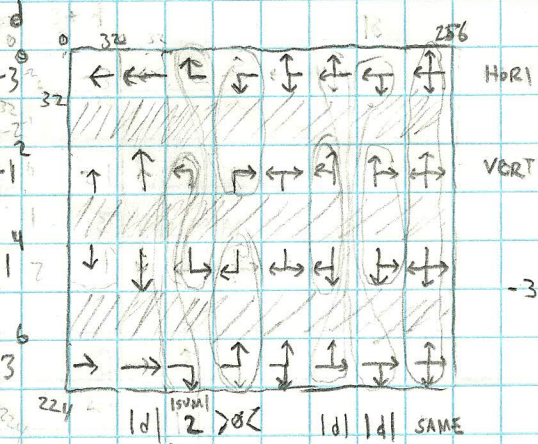 d
0 32 256
0
-3 HORI
32
2
-1 VERT
4
1
-3
6
3
224
|d| |SUM| 2 >0< |d| |d| SAME